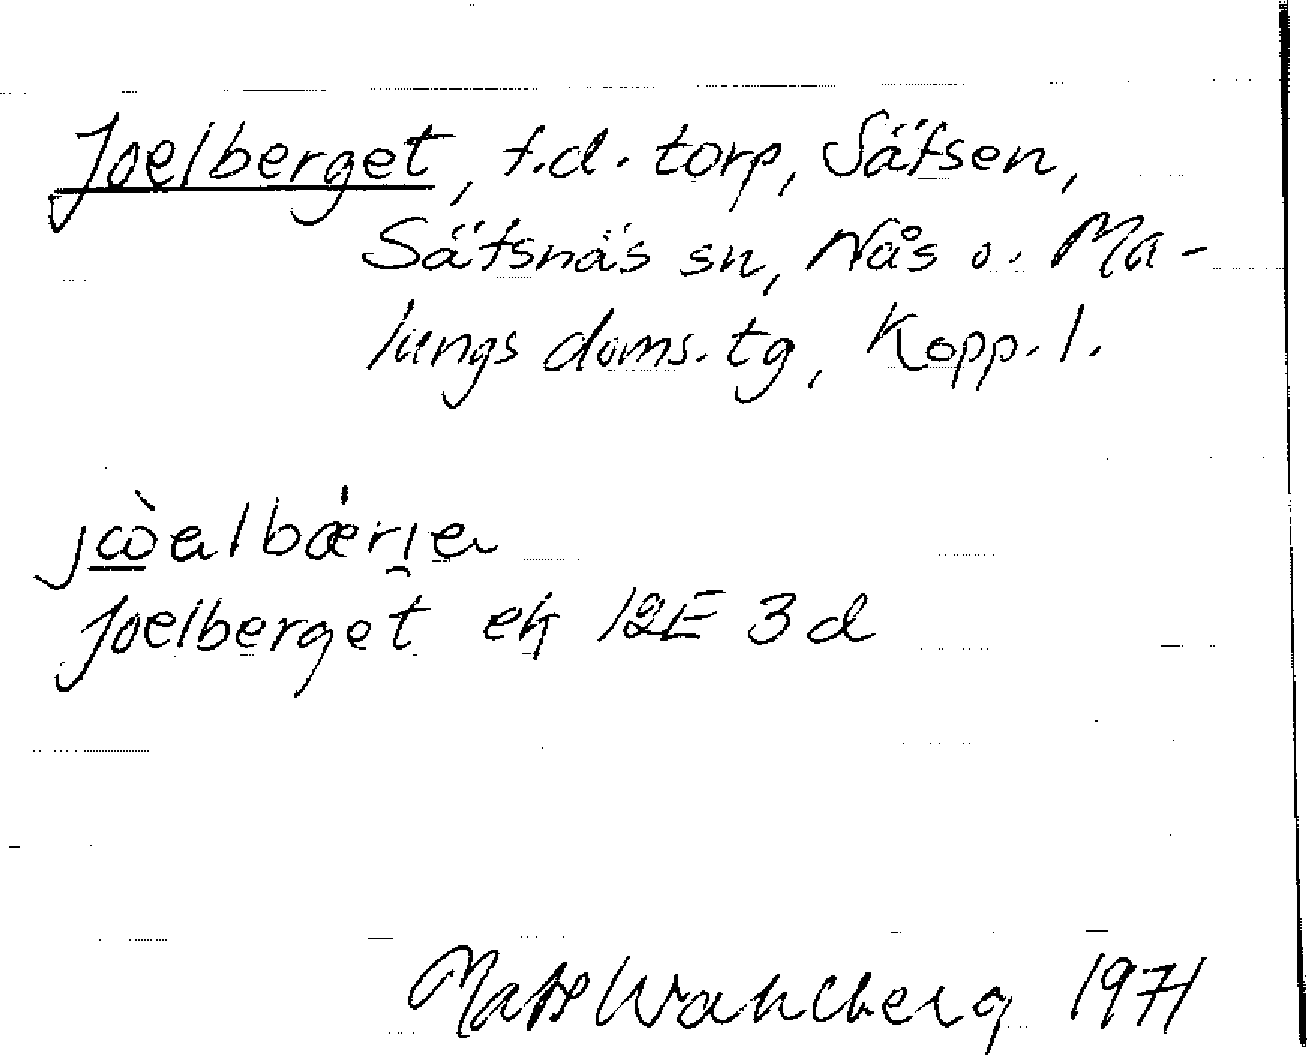 Joelberget, f.d. torp, Säfsen,
Säfsnäs sn, Nås o. Ma-
lungs doms. tg, Kopp. l.
Joelberget ek 12E 3d
Mats Wahlberg 1971